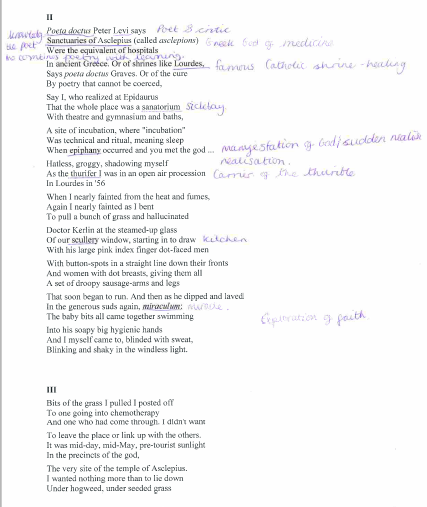 II
Poeta doctus Peter Levi says Poet & critic
Sanctuaries of Asclepius (called asclepions) Greek God of medicine
the poet
Were the equivalent of hospitals
he combines poetry with learning.
In ancient Greece. Or of shrines like Lourdes, famous Catholic shrine - healing
Says poeta doctus Graves. Or of the cure
By poetry that cannot be coerced,
Say I, who realized at Epidaurus
That the whole place was a sanatorium Sickbay
With theatre and gymnasium and baths,
A site of incubation, where "incubation"
Was technical and ritual, meaning sleep
When epiphany occurred and you met the god ... manifestation of God/sudden
realisation.
Hatless, groggy, shadowing myself
As the thurifer I was in an open air procession Carrier of the thurible
In Lourdes in '56
When I nearly fainted from the heat and fumes,
Again I nearly fainted as I bent
To pull a bunch of grass and hallucinated
Doctor Kerlin at the steamed-up glass
Of our scullery window, starting in to draw kitchen
With his large pink index finger dot-faced men
With button-spots in a straight line down their fronts
And women with dot breasts, giving them all
A set of droopy sausage-arms and legs
That soon began to run. And then as he dipped and laved
In the generous suds again, miraculum: miracle.
The baby bits all came together swimming
Exploration of faith
Into his soapy big hygienic hands
And I myself came to, blinded with sweat,
Blinking and shaky in the windless light.
III
Bits of the grass I pulled I posted off
To one going into chemotherapy
And one who had come through. I didn't want
To leave the place or link up with the others.
It was mid-day, mid-May, pre-tourist sunlight
In the precincts of the god,
The very site of the temple of Asclepius.
I wanted nothing more than to lie down
Under hogweed, under seeded grass